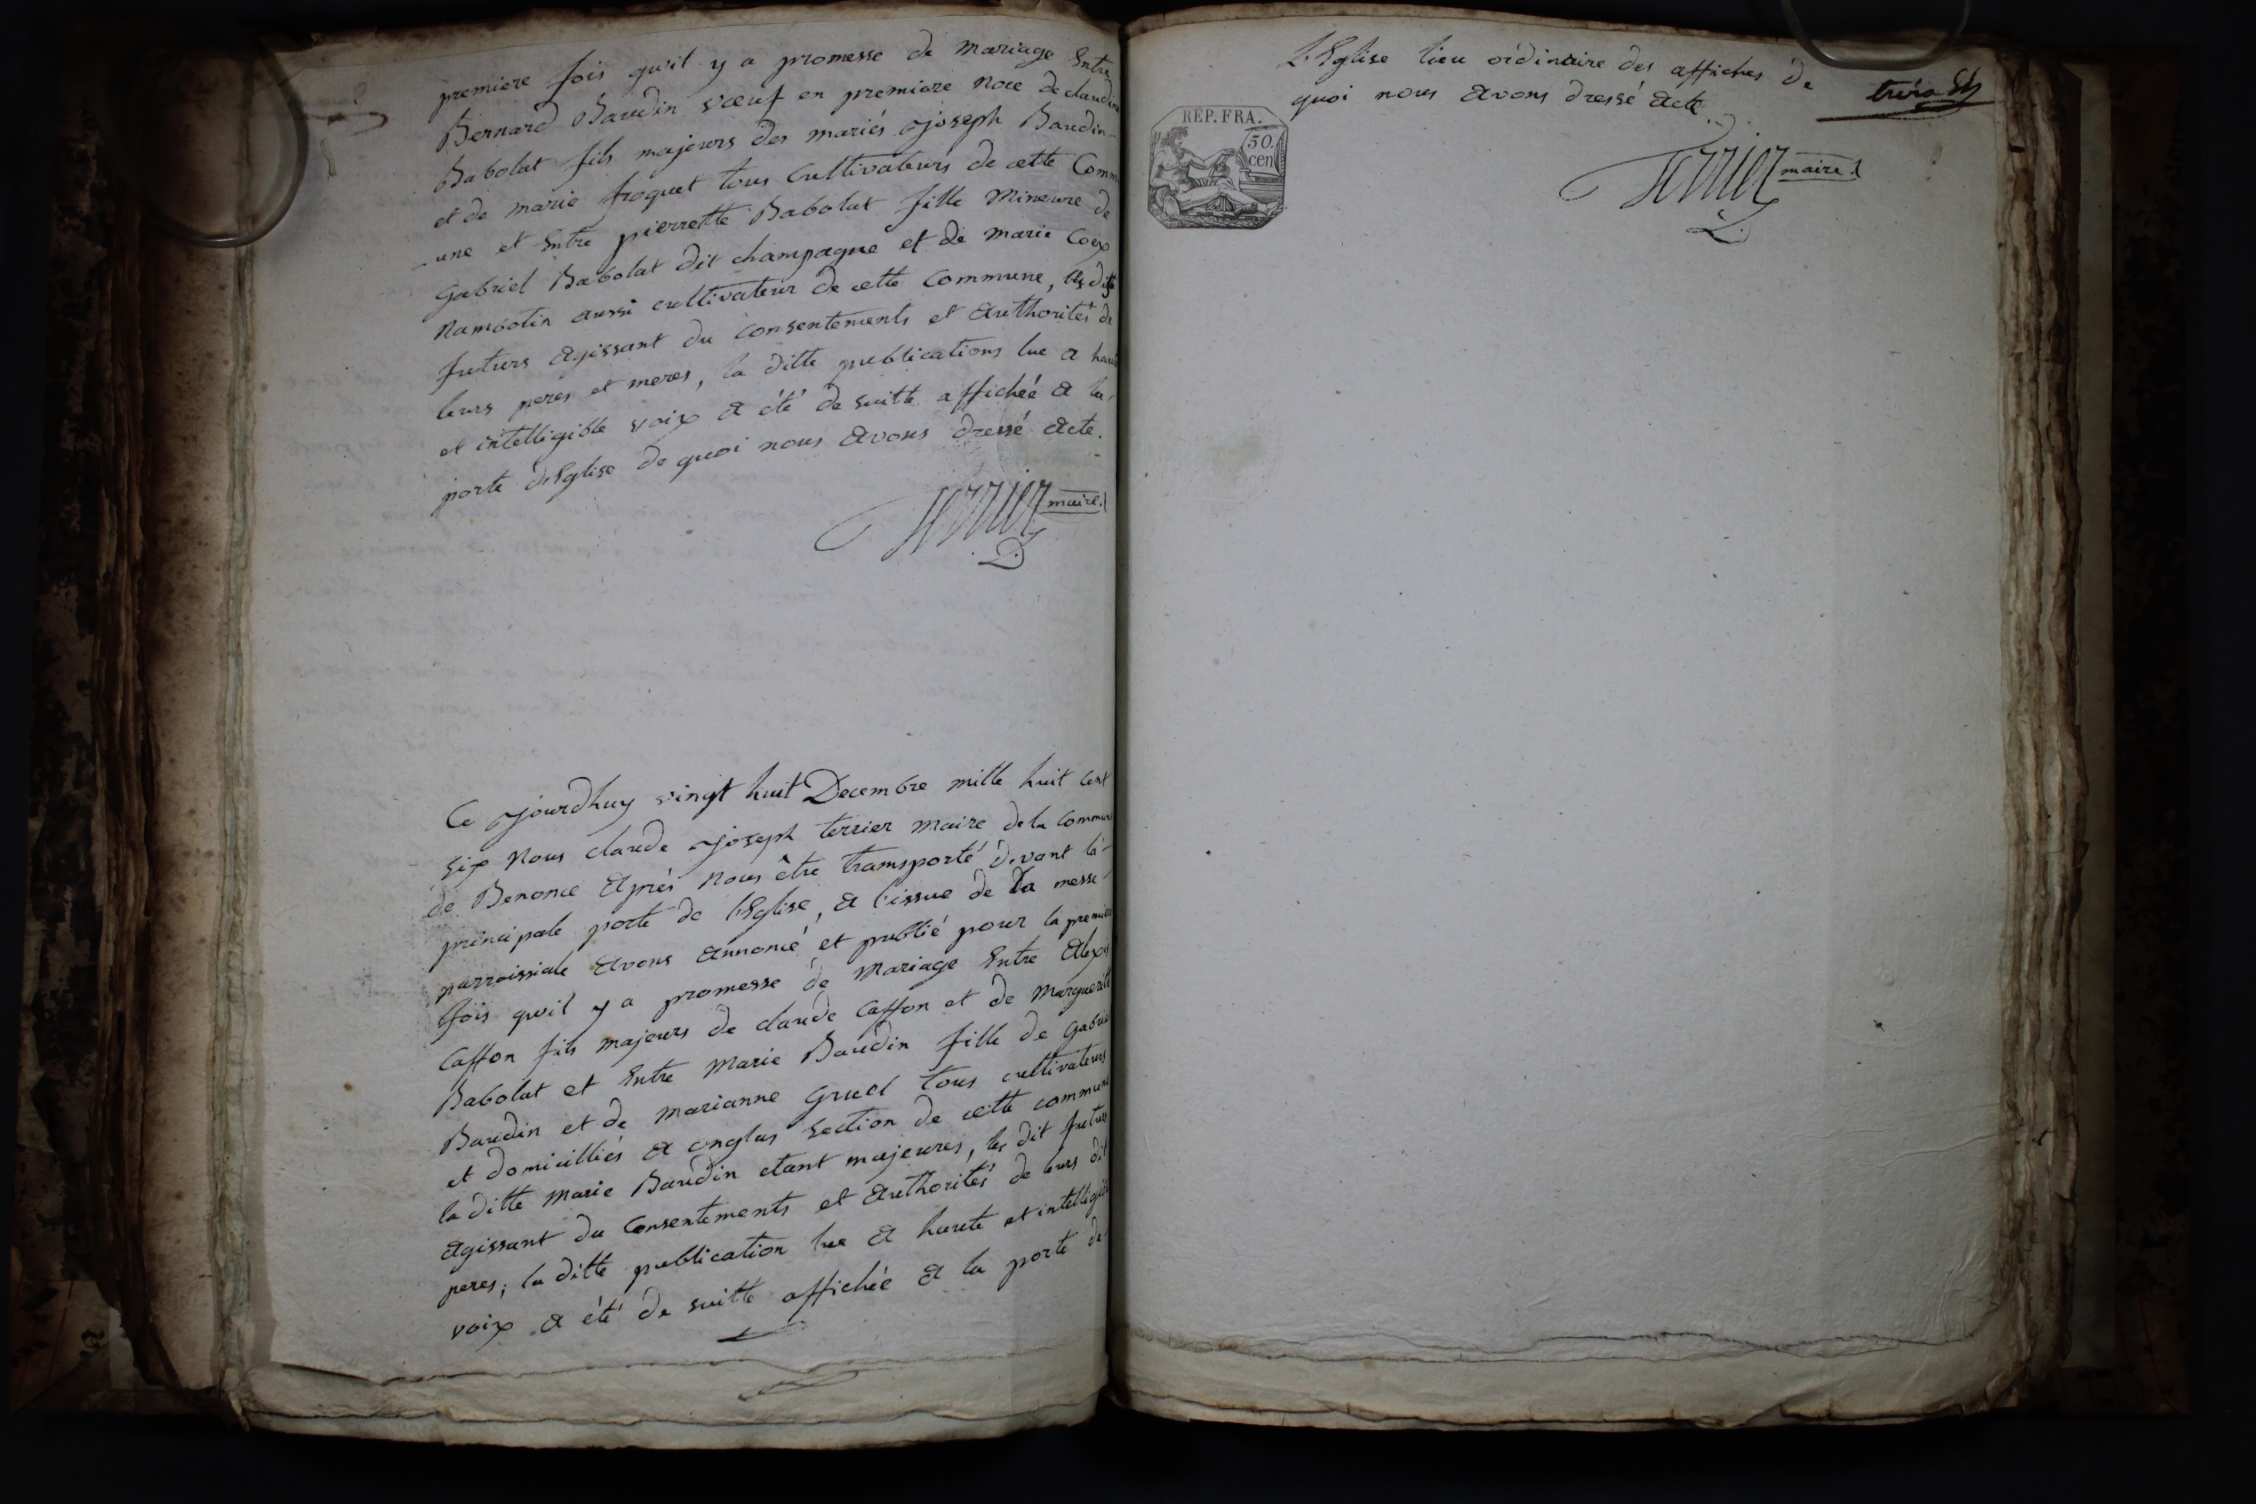 premiere fois qu'il y a promesse de mariage Entre
Bernard Baudin vœuf en premiere noce de claudine
Babolat fils majeurs des mariés joseph Baudin
et de marie froquet tous Cultivateurs de cette Comm
une et Entre pierrette Babolat fille Mineure de
Gabriel Babolat dit champagne et de marie
aussi cultivateur de cette commune, les dits
futurs agissant du consentements et authorités de
leurs peres et meres, la ditte publications lue a haute
et intelligible voix a été de suitte affichée a la
porte d'Eglise de quoi nous avons dressé acte.
terrier maire
Ce jourdhuy vingt huit Decembre mille huit cent
six Nous claude joseph terrier maire de la commune
de Benonce après nous être transporté devant la
principale porte de l'Eglise, a l'issue de la messe
parroissiale avons annoncé et publié pour la premiere
fois qu'il y a promesse de Mariage Entre Alexis
Caffon fils majeurs de claude Caffon et de Marguerite
Babolat et Entre Marie Baudin fille de Gabriel
Baudin et de marianne Gruel tous cultivateurs
et domicilliés a onglas section de cette commune
la ditte Marie Baudin etant majeures, les dit futurs
agissant du Consentements et authorités de leurs dit
peres; la ditte publication lue a haute et intelligible
voix a été de suitte affichée a la porte de
L'Eglise lieu ordinaire des affiches de
quoi nous avons dressé acte
REP. FRA.
50.
cen
terrier maire